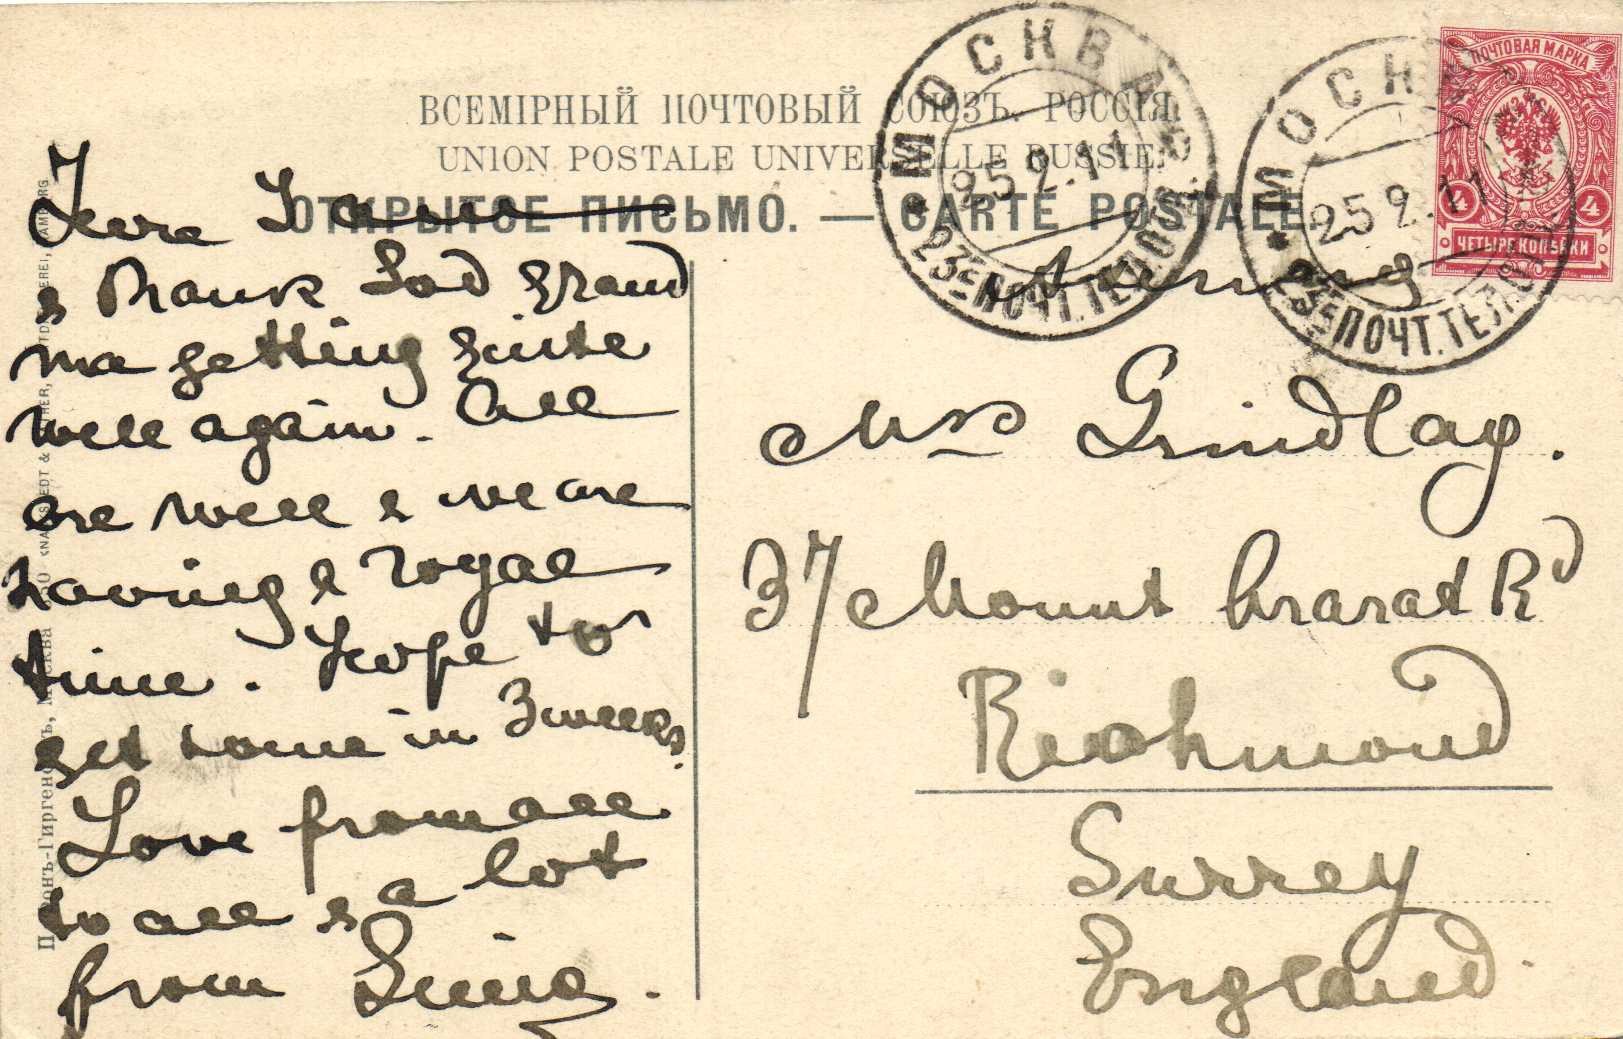 ВСЕМІРНЫЙ ПОЧТОВЫЙ СОЮЗЪ. РОССІЯ.
UNION POSTALE UNIVERSELLE RUSSIE.
ОТКРЫТОЕ ПИСЬМО. — CARTE POSTALE.
МОСКВА
25 2.11
23 ПОЧТ. ТЕЛ. ОТД.
МОСКВА
25 2.11
23 ПОЧТ. ТЕЛ. ОТД.
ПОЧТОВАЯ МАРКА
4 4
ЧЕТЫРЕ КОПѢЙКИ
Here I am
& thank God Grand
ma getting quite
well again. All
are well & we are
having a royal
time. Hope to
get home in 3 weeks.
Love from all
to all & a lot
from
Mrs Grindlay.
37 Mount Ararat Rd
Richmond
Surrey
England